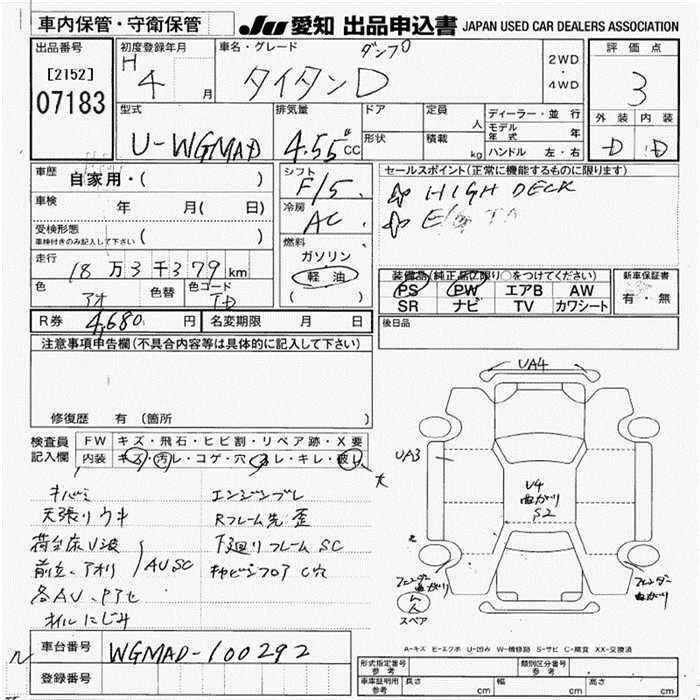 車内保管・守衛保管
JU 愛知 出品申込書 JAPAN USED CAR DEALERS ASSOCIATION
出品番号
[2152]
07183
初度登録年月
H 4 月
車名・グレード
ダンプ
タイタンD
2WD
・
4WD
評価点
3
外装 内装
D D
型式
U-WGMAD
排気量
4.55 CC
ドア
形状
定員
人
積載
kg
ディーラー・並行
モデル年式 年
ハンドル 左・右
車歴
自家用・( )
車検
年 月( 日)
受検形態
車検付きのみ記入して下さい ( )
走行
18万3千379km
色
アオ
色替
色コード
TD
シフト
F/5
冷房
AC
燃料
ガソリン
軽油
( )
セールスポイント(正常に機能するものに限ります)
HIGH DECK
装備品(純正品に限り○をつけてください)
PS PW エアB AW
SR ナビ TV カワシート
新車保証書
有・無
R券 4,680 円
名変期限 月 日
後日品
注意事項申告欄(不具合内容等は具体的に記入して下さい)
修復歴 有 (箇所
検査員
記入欄
FW キズ・飛石・ヒビ割・リペア跡・X要
内装 キズ・汚レ・コゲ・穴・スレ・キレ・破レ
大
キバミ
天張りウキ
荷台床U波
前立、アオリ AUSC
各AU、Pアセ
オイルにじみ
エンジンブレ
Rフレーム先歪
下廻りフレームSC
キャビンフロアC穴
UA4
UA3
U4
曲がり
S2
フェンダー
曲がり
フェンダー
曲がり
スペア
車台番号
WGMAD-100292
登録番号
A-キズ E-エクボ U-凹み W-補修跡 S-サビ C-腐食 XX-交換済
形式指定番号
参考
類別区分番号
参考
車庫証明用
参考
長さ cm
幅 cm
高さ cm